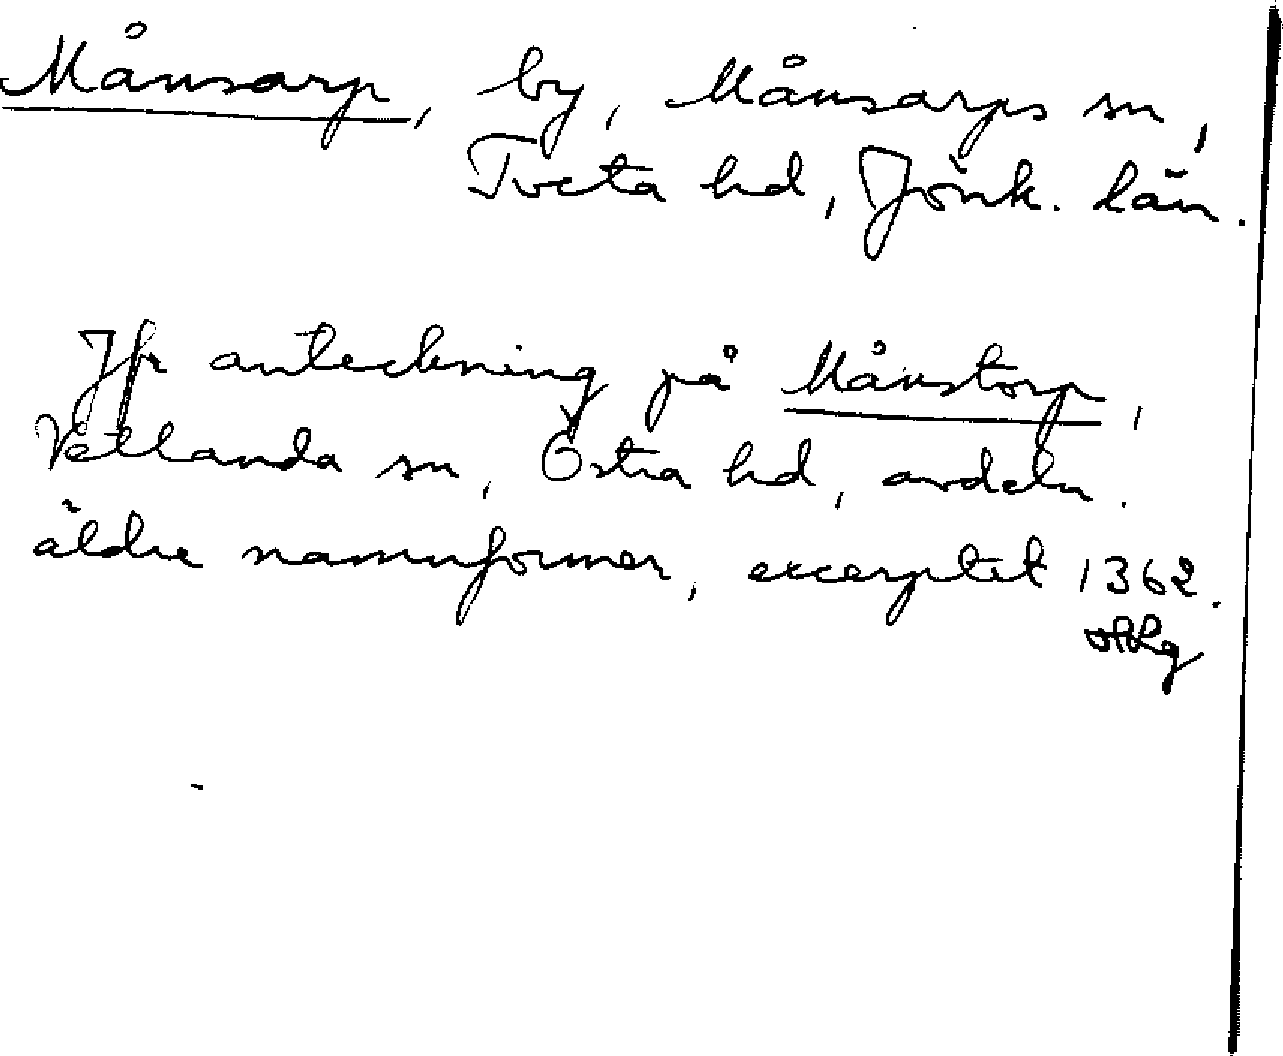 Månsarp, by, Månsarps sn,
Tveta hd, Jönk. län.
Jfr anteckning på Månstorp,
Vetlanda sn, Östra hd, avdeln.
äldre namnformer, excerptet 1362.